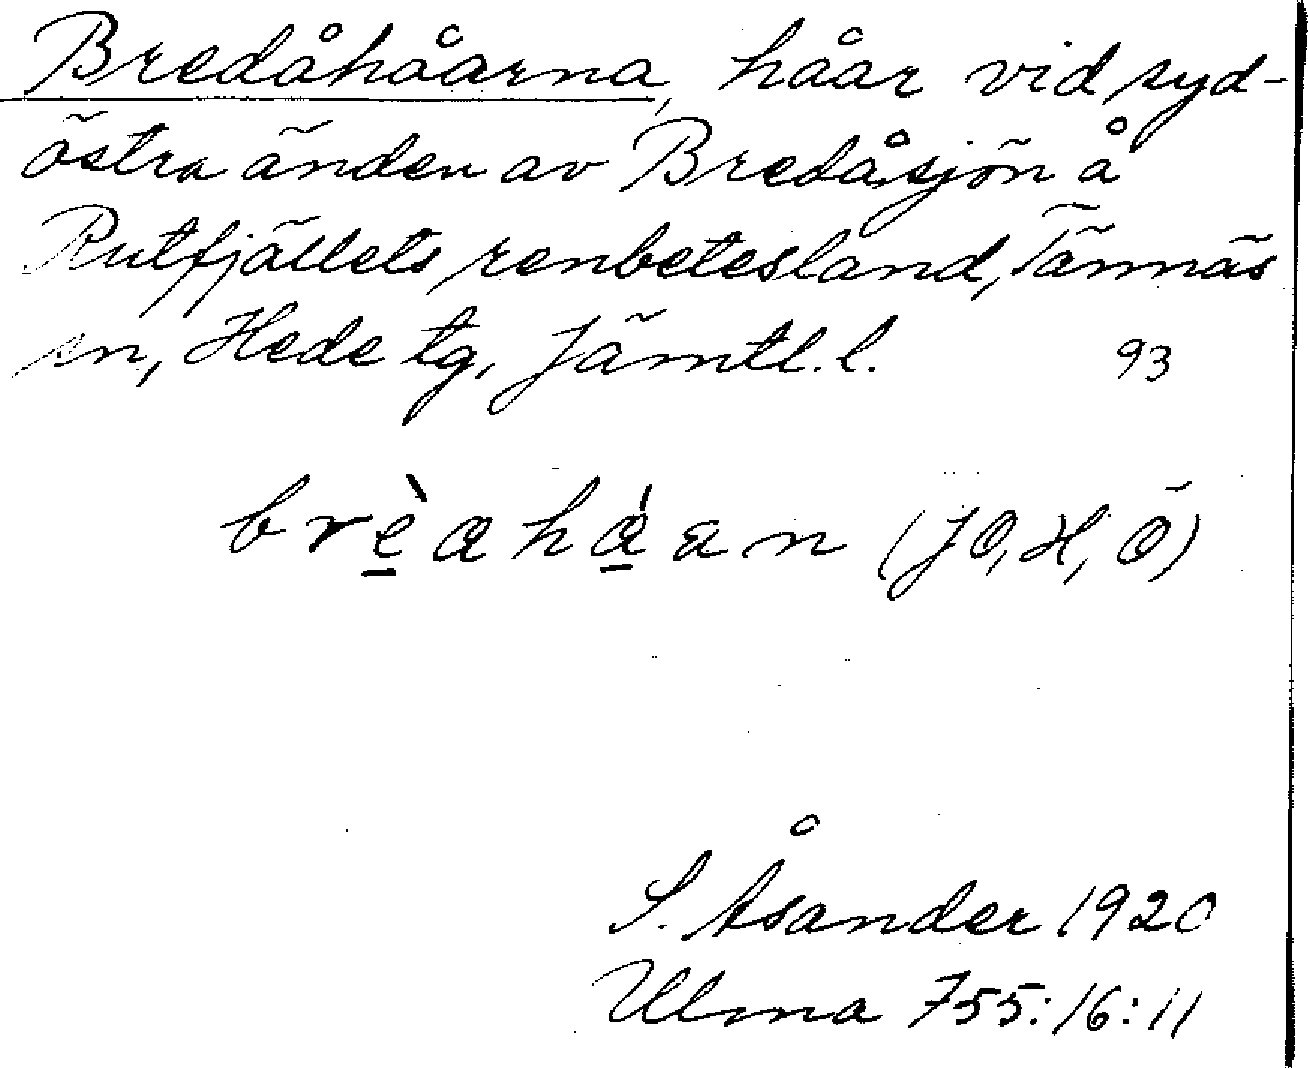 Bredåhåarna, håar vid syd-
östra änden av Bredåsjön å
Rutfjällets renbetesland, Tännäs
sn, Hede tg, Jämtl. l. 93
brèaháan (JO, H, Ö)
S. Åsander 1920
Ulma 755:16:11